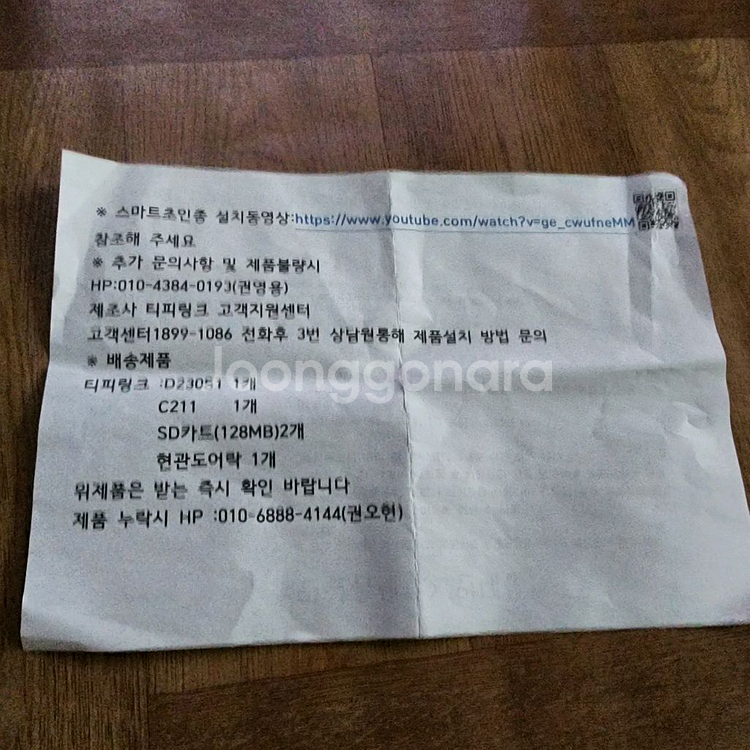 ※ 스마트초인종 설치동영상:https://www.youtube.com/watch?v=ge_cwufneMM
참조해 주세요
※ 추가 문의사항 및 제품불량시
HP:010-4384-0193(권영용)
제조사 티피링크 고객지원센터
고객센터1899-1086 전화후 3번 상남원통해 제품설치 방법 문의
※ 배송제품
joonggonara
티피링크 :D230S1 1개
C211 1개
SD카트(128MB)2개
현관도어락 1개
위제품은 받는 즉시 확인 바랍니다
제품 누락시 HP :010-6888-4144(권오현)